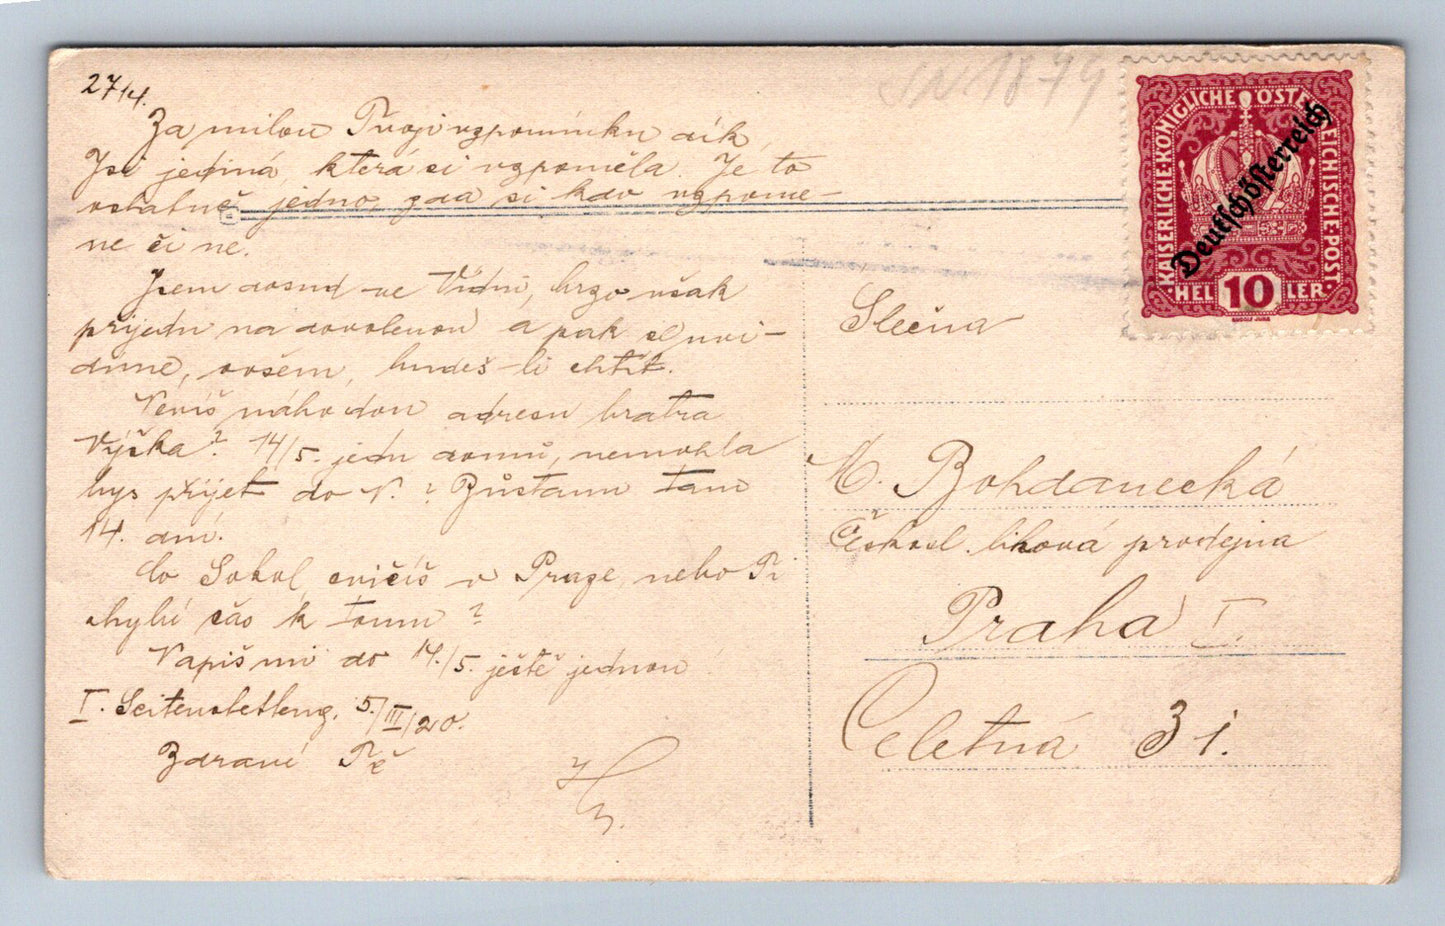 27/4.
Za milou Tvoji vzpomínku dík,
Jsi jediná, která si vzpoměla. Je to
ostatně jedno, zda si kdo vzpome-
ne či ne.
Jsem dosud ve Vídni, brzo však
přijedu na dovolenou a pak se uvi-
díme, ovšem, budeš-li chtít.
Nevíš náhodou adresu bratra
Výška? 14/5. jedu domů, nemohla
bys přijet do N.? Zůstanu tam
14. dní.
Co Sokol, cvičíš v Praze, nebo Ti
chybí čas k tomu?
Napiš mi do 14./5. ještě jednou!
I. 5/III/20.
Zdraví Tě
SN 1879
KAISERLICHE·KÖNIGLICHE ÖSTERREICHISCHE·POST
Deutschösterreich
HEL 10 LER
Slečna
M. Bohdanecká
Českosl. lihová prodejna
Praha I.
Celetná 31.